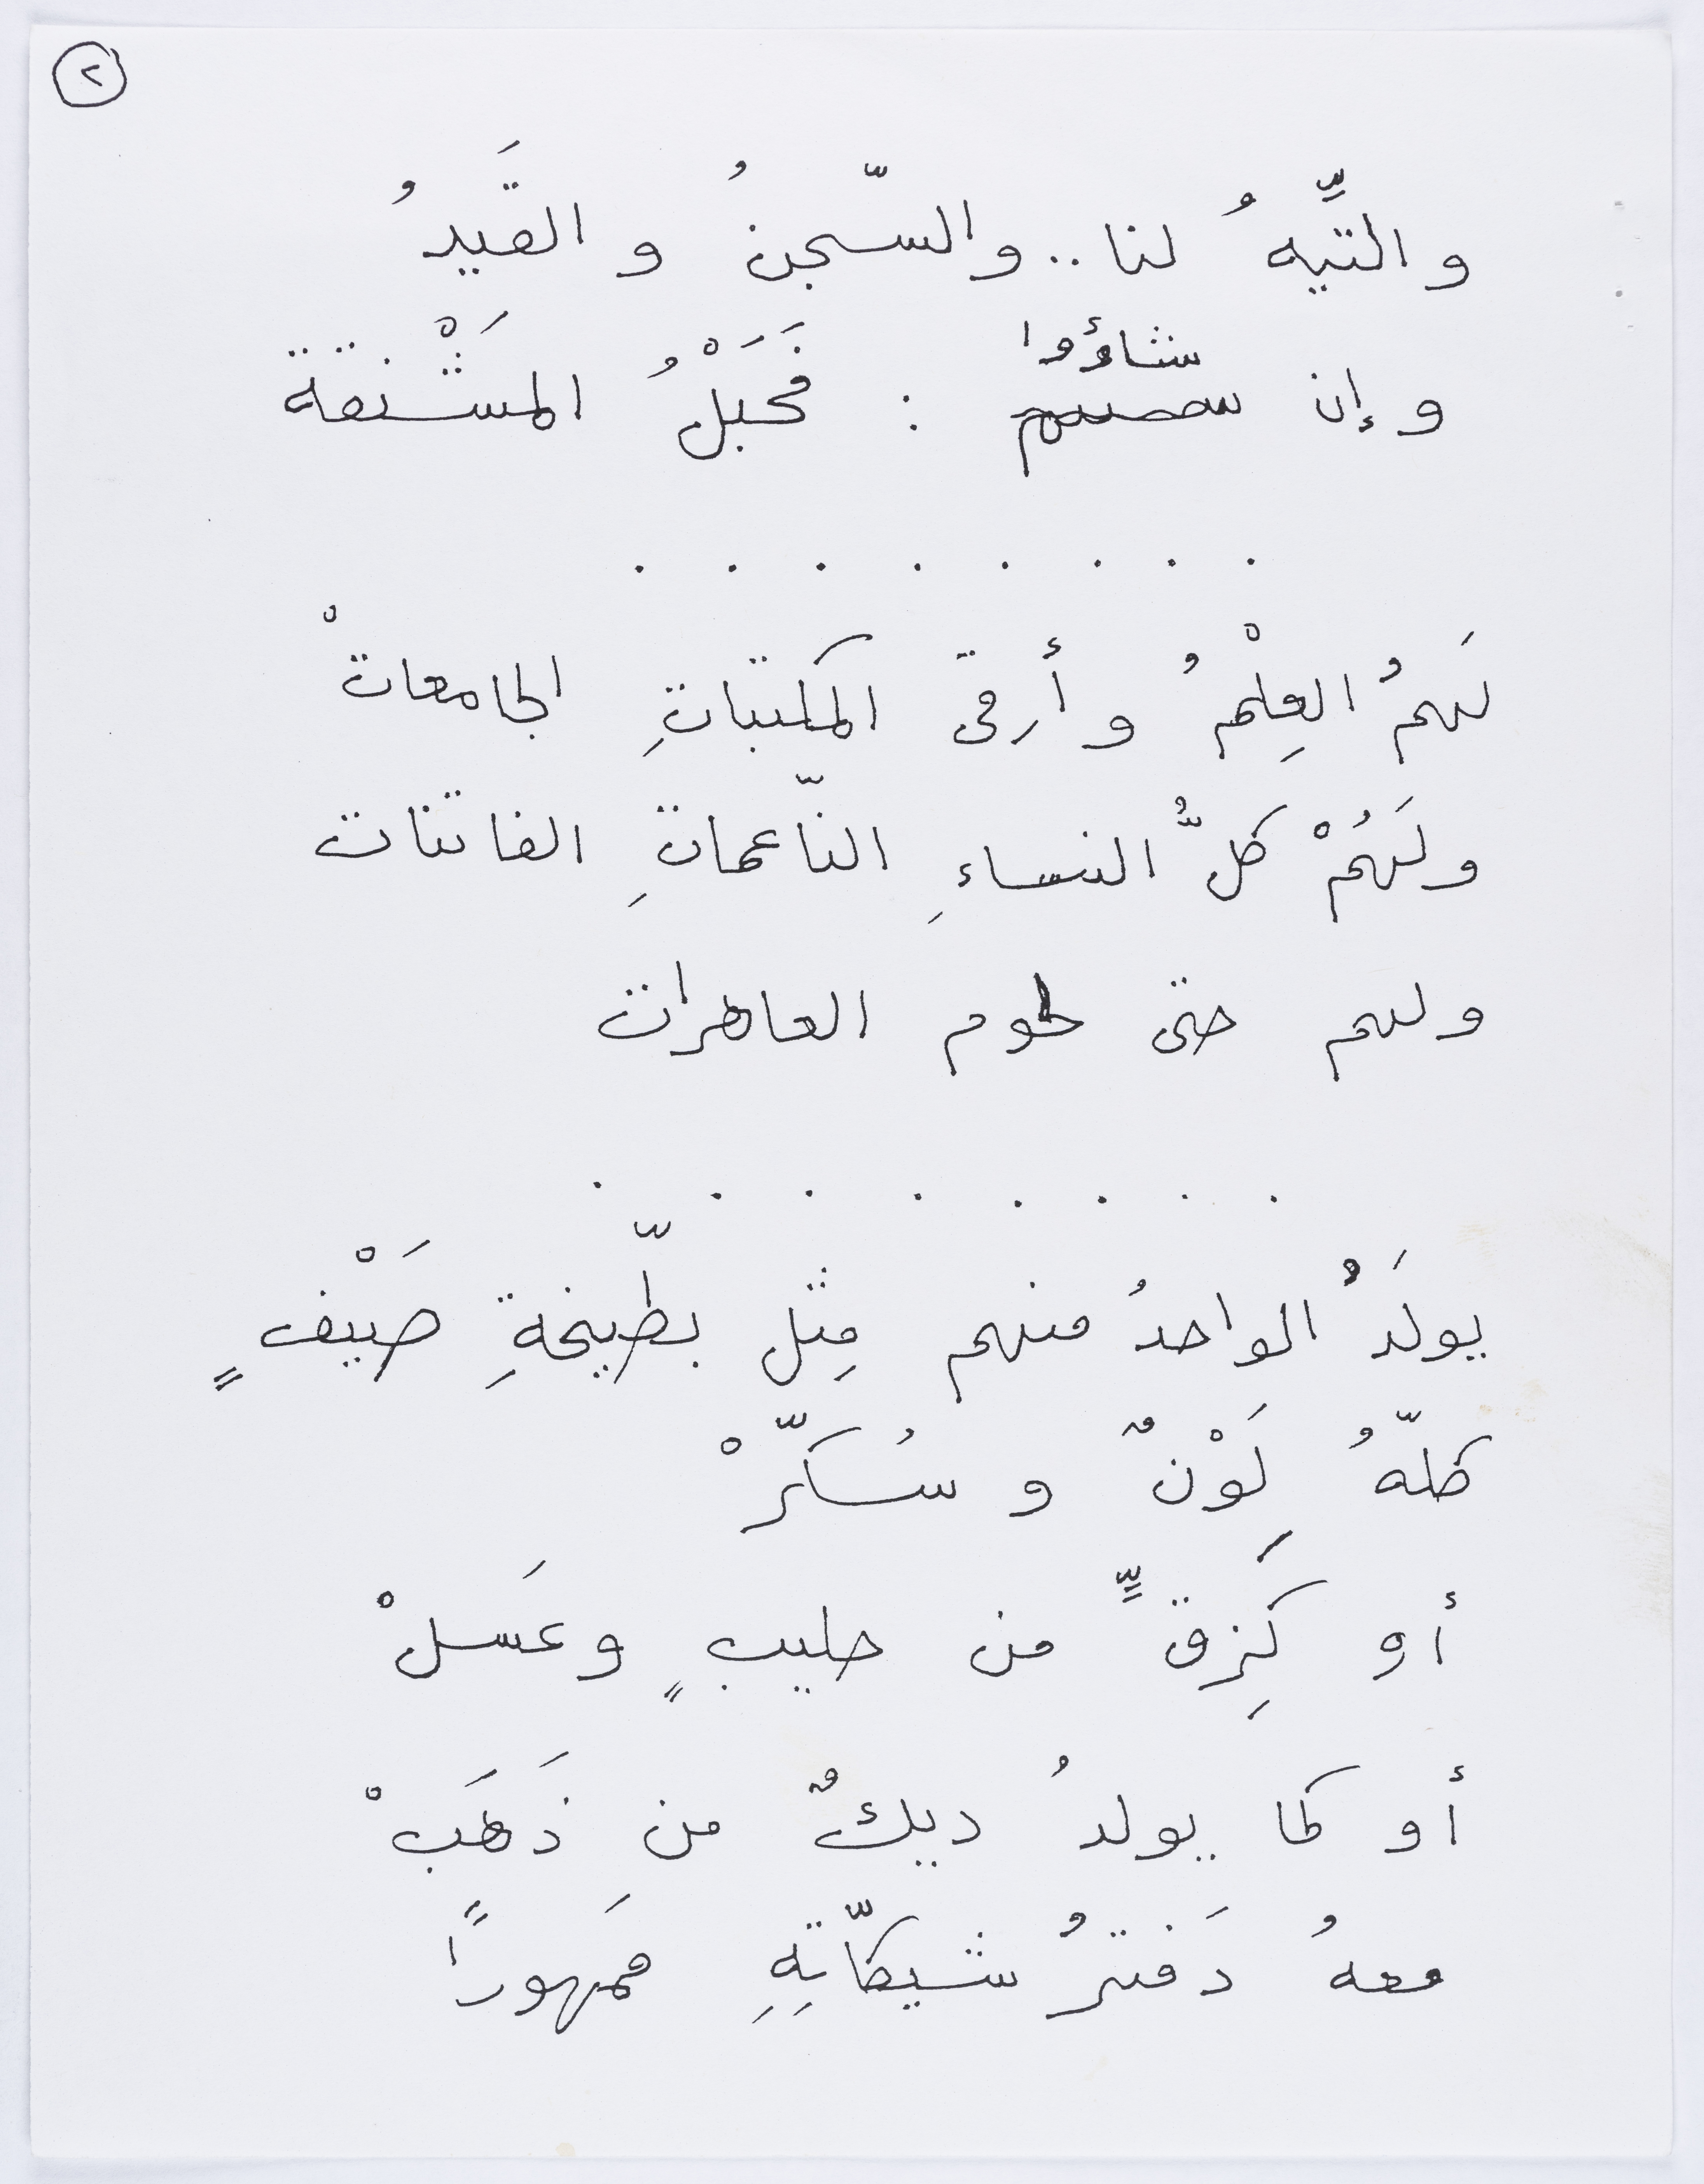 ٢
و التِّيهُ لنا .. والسّجنُ و القَيدُ
شاؤوا
و إن : فَحَبْلُ المَشْنقة
. . . . . . . .
لَهمُ العِلْمُ و أرقى المكتباتِ الجامعاتْ
ولَهُمْ كلُّ النساءِ النّاعماتِ الفاتنات
ولهم حتى لحوم العاهرات
. . . . . . . .
يولَدُ الواحدُ منهم مِثل بطّيخةِ صَيْفٍ
كلّهُ لَوْنٌ و سُكّرْ
أو كَزِقٍّ من حليبٍ وعَسلْ
أو كما يولدُ ديكٌ من ذَهَبْ
معهُ دَفترُ شيكّاتِهِ مَمهوراً